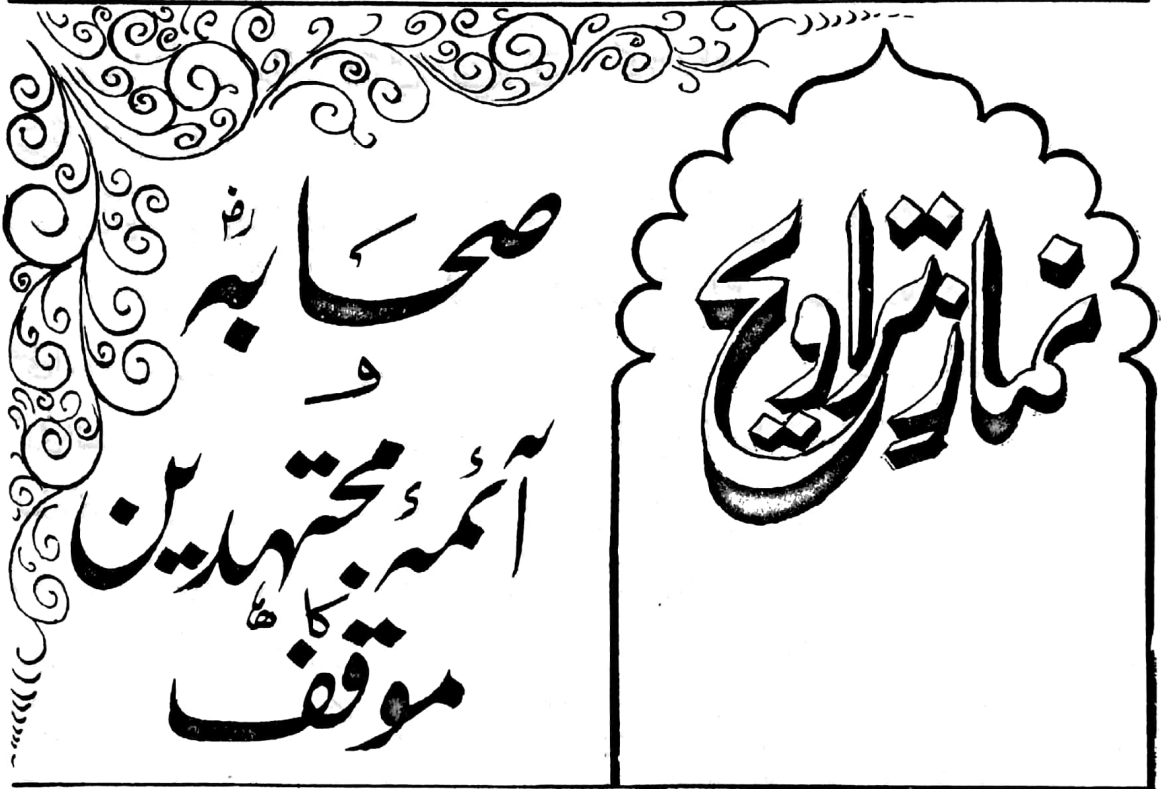 نمازِ تراویح
صحابہؓ
و
آئمۂ مجتہدین
کا
موقف